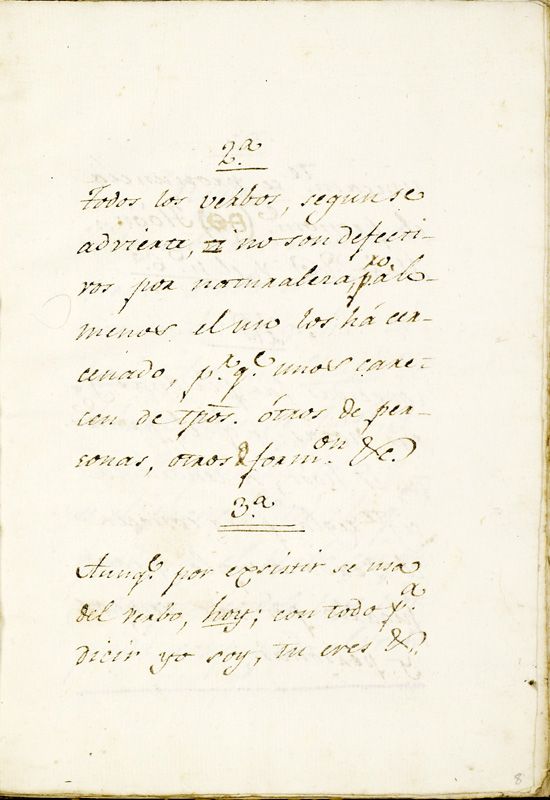 2.ª
todos los verbos, segun se
advierte, si no son defecti-
vos por naturaleza, p.ro à lo
menos el uso los há cer-
cenado, p.r q.e unos care-
cen de tpõs. ótros de per-
sonas, otros form.on &c.
3.ª
Aunq.e por exsistir se usa
del verbo, hoy; con todo p.ª
dicir yo soy, tu eres &.
8